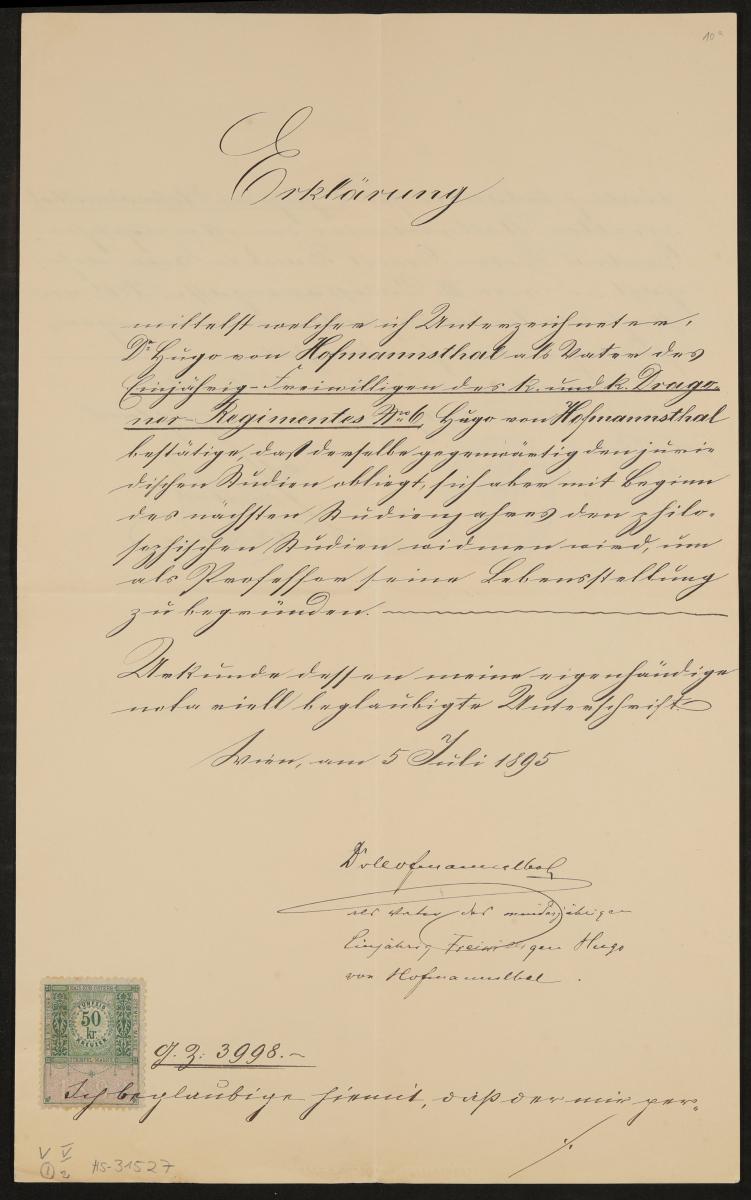 10a
Erklärung
mittelst welcher ich Unterzeichneter,
Dr. Hugo von Hofmannsthal als Vater des
Einjährig-Freiwilligen des k. und k. Drago-
ner-Regimentes No 6 Hugo von Hofmannsthal
bestätige, daß derselbe gegenwärtig den juri-
dischen Studien obliegt, sich aber mit Beginn
des nächsten Studienjahres den philo-
sophischen Studien widmen wird, um
als Professor seine Lebensstellung
zu begründen.
Urkunde dessen meine eigenhändige
notariell beglaubigte Unterschrift.
Wien, am 5 Juli 1895
Dr Hofmannsthal
als Vater des minderjährigen
Einjährig Freiwilligen Hugo
von Hofmannsthal.
FÜNFZIG
50
kr
KREUZER
STEMPEL MARKE
G. Z: 3998.-
Ich beglaubige hiemit, daß der mir per-
./.
V V
1 2
HS-31527